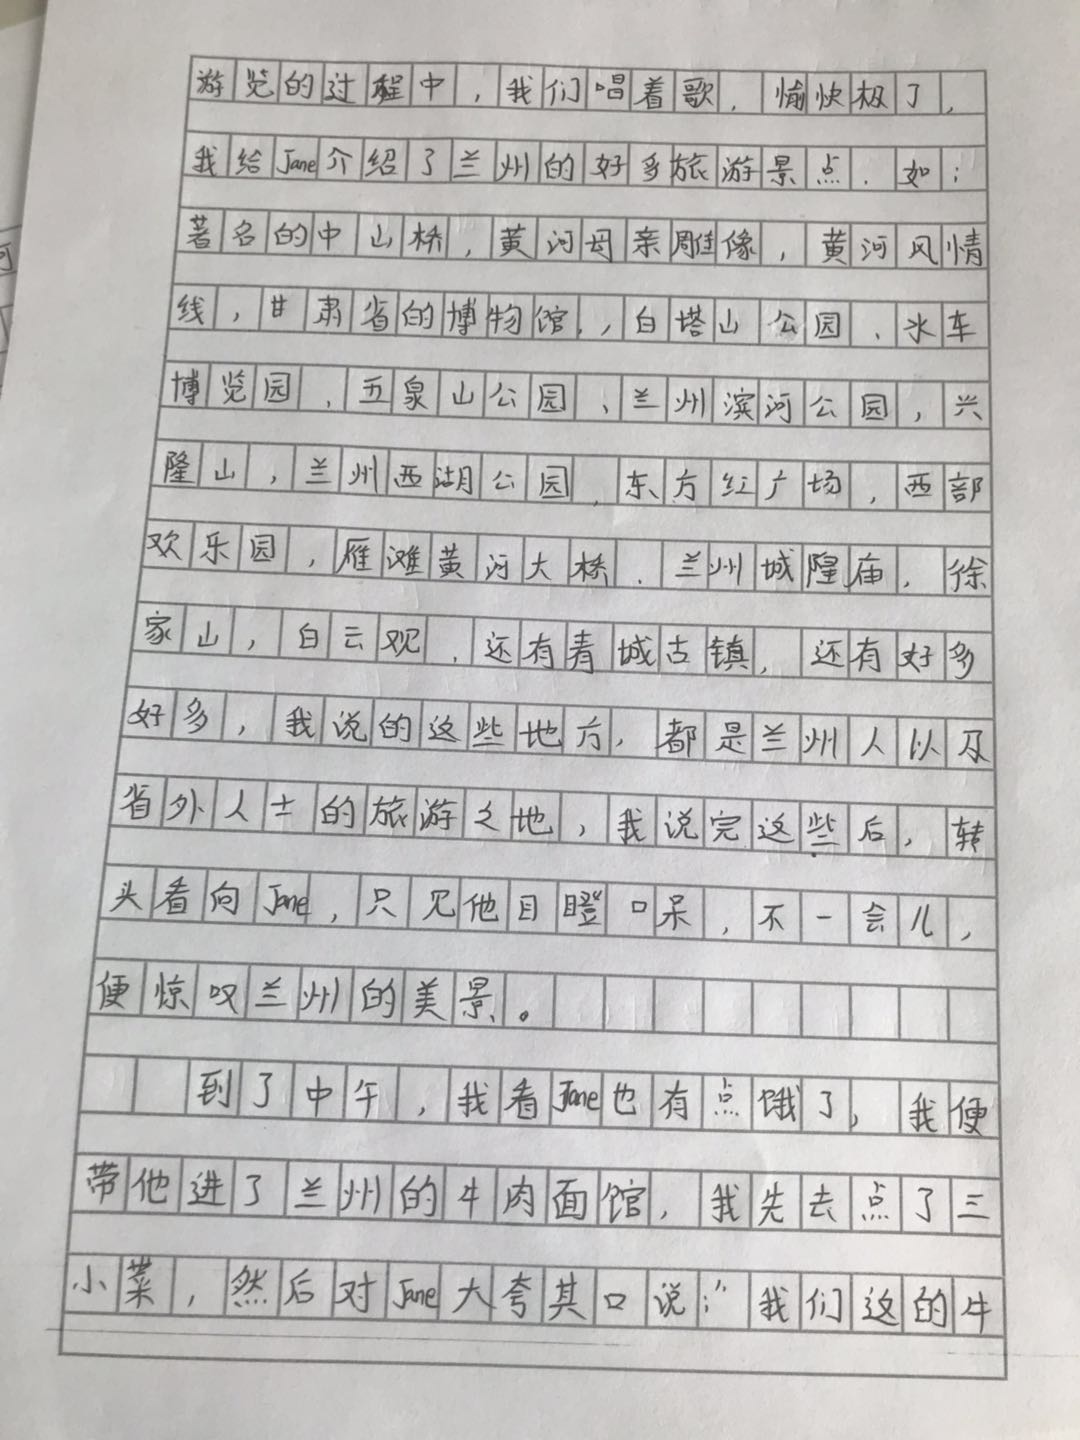 游览的过程中,我们唱着歌,愉快极了,
我给Jane介绍了兰州的好多旅游景点.如:
著名的中山桥,黄河母亲雕像,黄河风情
线,甘肃省的博物馆,,白塔山公园、水车
博览园、五泉山公园、兰州滨河公园,兴
隆山,兰州西湖公园、东方红广场,西部
欢乐园,雁滩黄河大桥.兰州城隍庙,徐
家山,白云观、还有青城古镇,还有好多
好多,我说的这些地方,都是兰州人以及
省外人士的旅游之地,我说完这些后,转
头看向Jane,只见他目瞪口呆,不一会儿,
便惊叹兰州的美景。
到了中午,我看Jane也有点饿了,我便
带他进了兰州的牛肉面馆,我先去点了三
小菜,然后对Jane大夸其口说:“我们这的牛